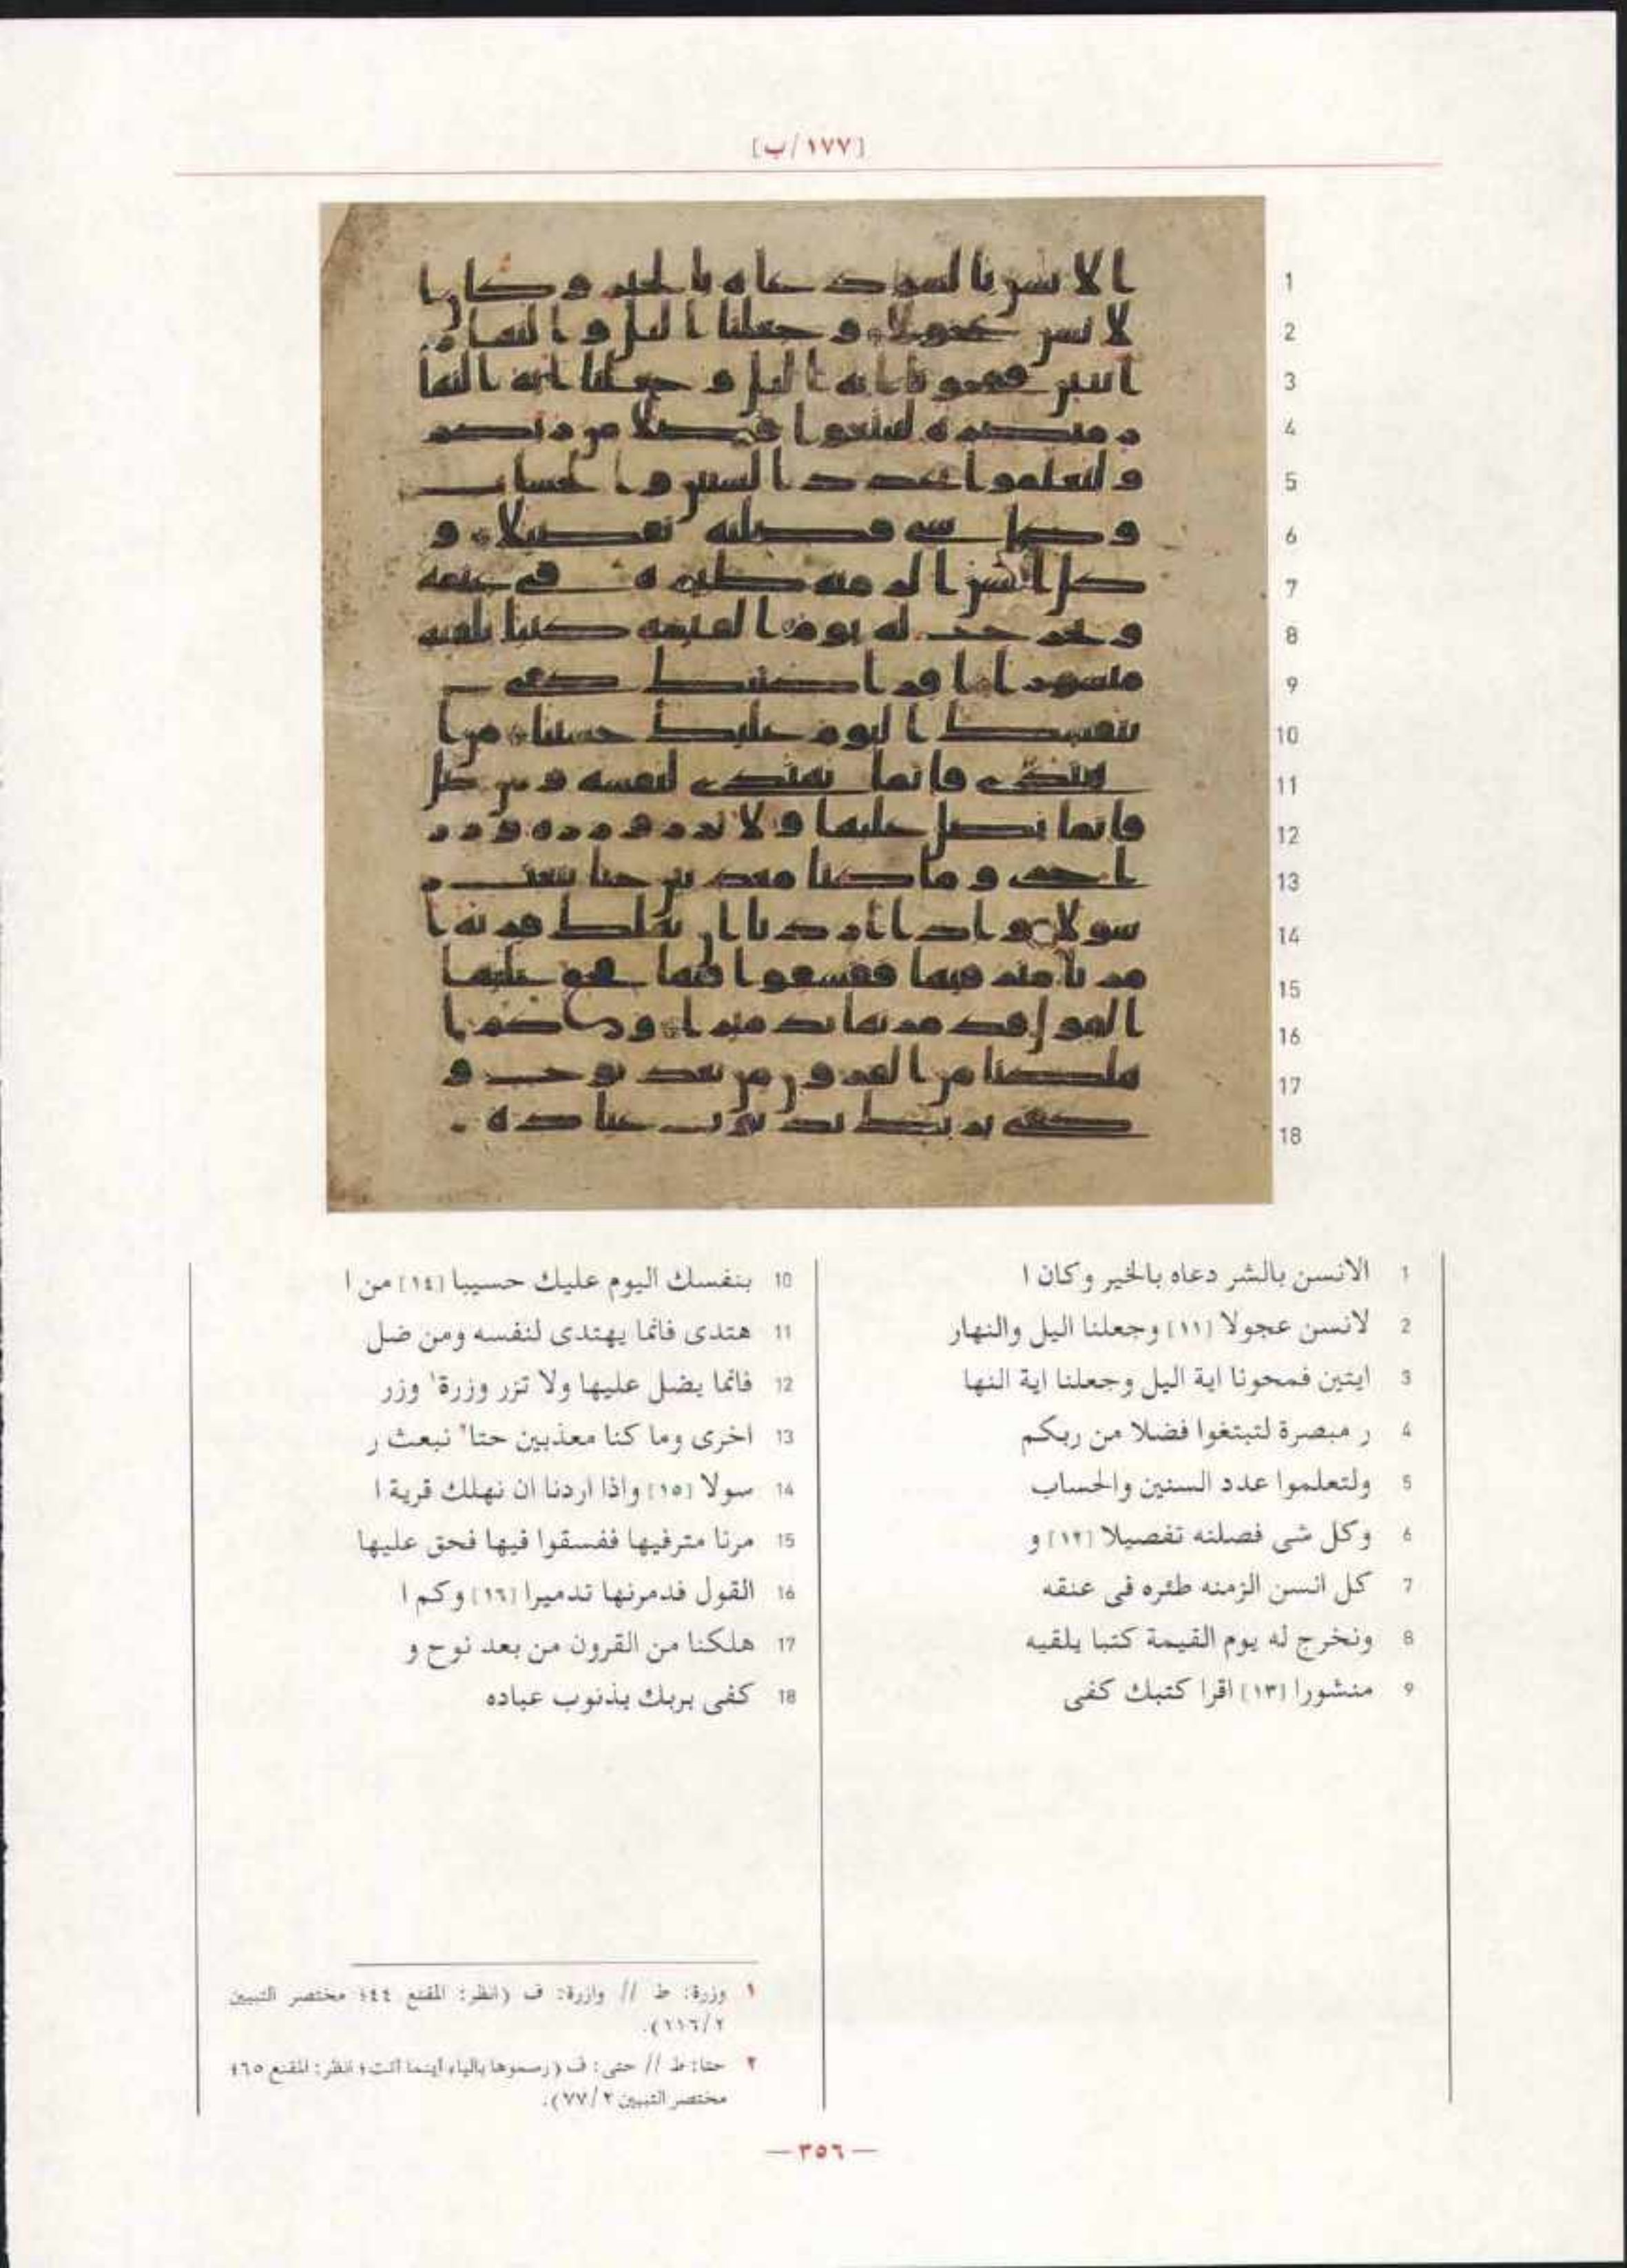 [١٧٧/ب]
1
2
3
4
5
6
7
8
9
10
11
12
13
14
15
16
17
18
1 الانسن بالشر دعاه بالخير وكان ا
2 لانسن عجولا [١١] وجعلنا اليل والنهار
3 ايتين فمحونا اية اليل وجعلنا اية النها
4 ر مبصرة لتبتغوا فضلا من ربكم
5 ولتعلموا عدد السنين والحساب
6 وكل شى فصلنه تفصيلا [١٢] و
7 كل انسن الزمنه طئره فى عنقه
8 ونخرج له يوم القيمة كتبا يلقيه
9 منشورا [١٣] اقرا كتبك كفى
10 بنفسك اليوم عليك حسيبا [١٤] من ا
11 هتدى فانما يهتدى لنفسه ومن ضل
12 فانما يضل عليها ولا تزر وزرة١ وزر
13 اخرى وما كنا معذبين حتا٢ نبعث ر
14 سولا [١٥] واذا اردنا ان نهلك قرية ا
15 مرنا مترفيها ففسقوا فيها فحق عليها
16 القول فدمرنها تدميرا [١٦] وكم ا
17 هلكنا من القرون من بعد نوح و
18 كفى بربك بذنوب عباده
١ وزرة: ط // وازرة: ف (انظر: المقنع ٤٤؛ مختصر التبيين
٢/١١٦).
٢ حتا: ط // حتى: ف (رسموها بالياء أينما أتت؛ انظر: المقنع ٦٥؛
مختصر التبيين ٢/٧٧).
— ٣٥٦ —